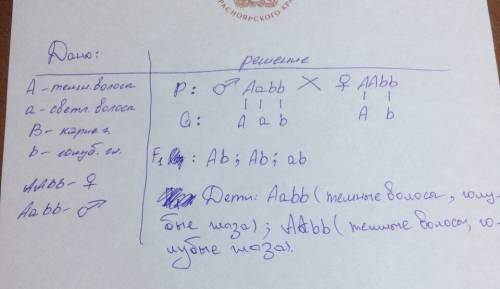 КРАСНОЯРСКОГО КРА
Дано:
решение
А - темн. волоса
а - светл. волоса
В - карие г.
b - голуб. гл.
ААbb - ♀
Ааbb - ♂
P: ♂ Aabb × ♀ AAbb
G: A a b A b
F₁ : Ab; Ab; ab
Дети: Aabb (темные волоса, голу-
бые глаза); AAbb (темные волосы, го-
лубые глаза).